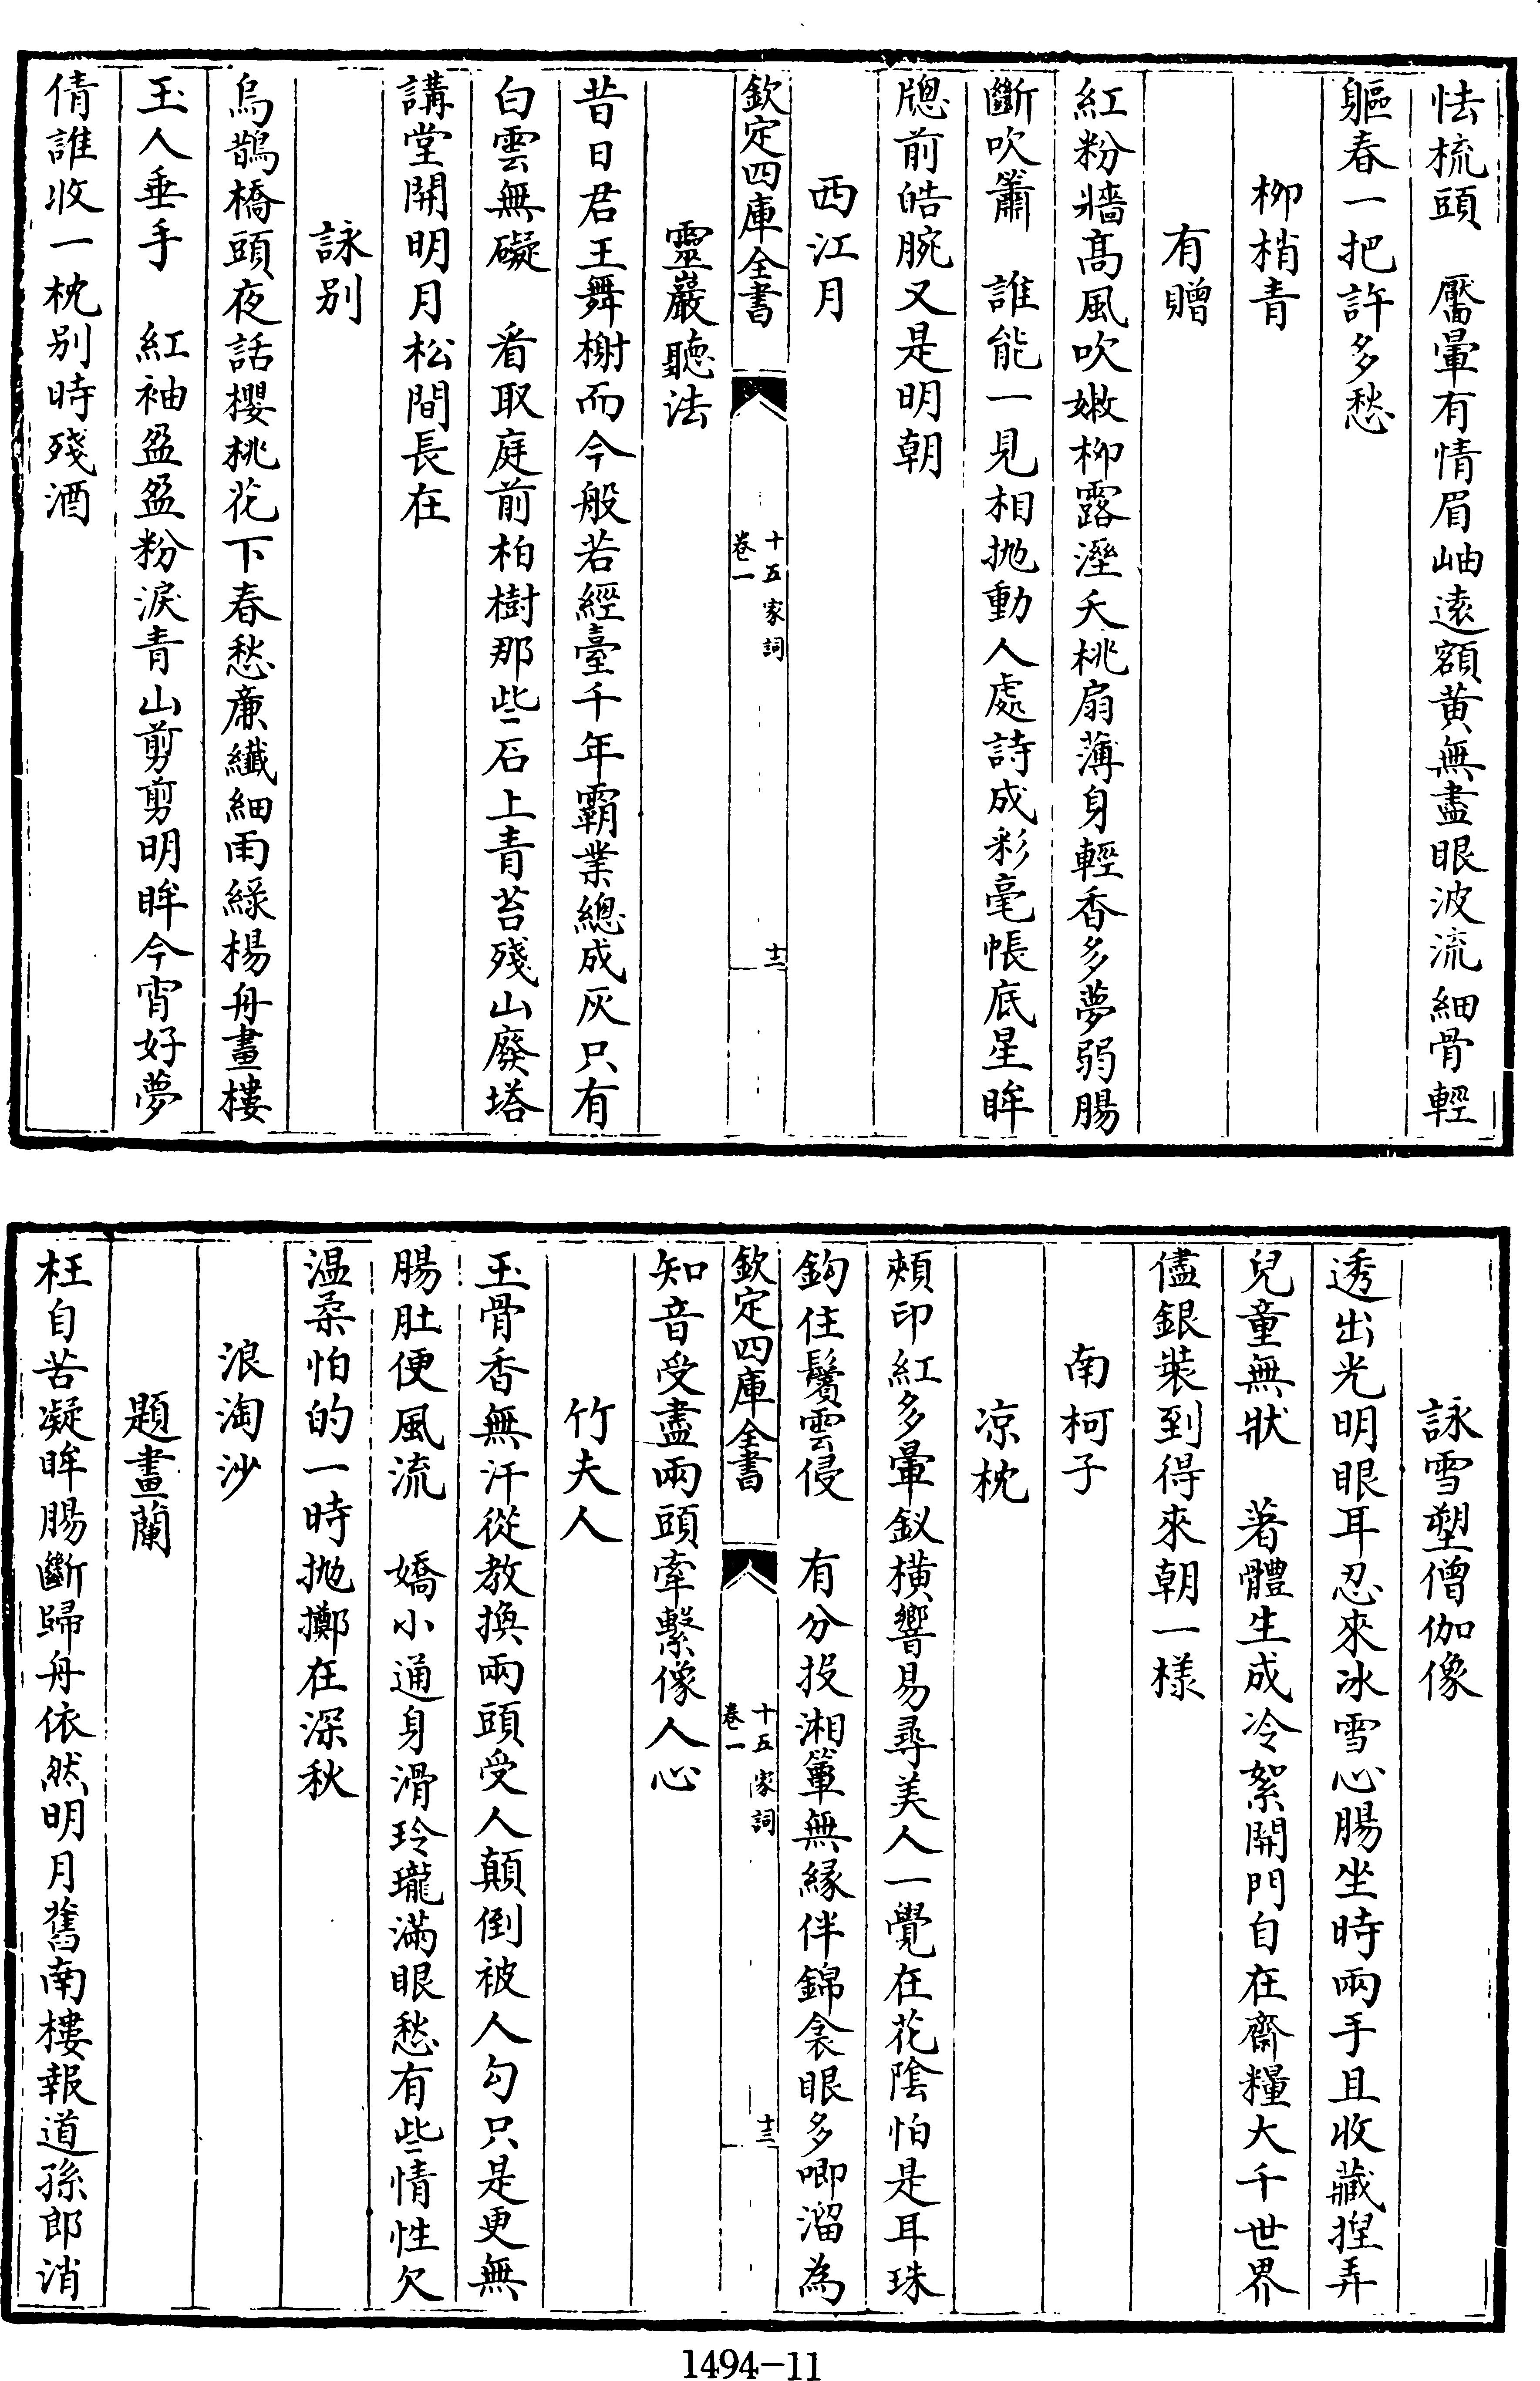 怯梳頭　靨暈有情眉岫遠額黄無盡眼波流細骨輕
軀春一把許多愁
柳梢青
有贈
紅粉牆髙風吹嫩柳露溼夭桃扇薄身輕香多夢弱腸
斷吹簫　誰能一見相抛動人處詩成彩毫帳底星眸
牕前皓腕又是明朝
西江月
欽定四庫全書
十五家詞
卷一
十二
靈巖聽法
昔日君王舞榭而今般若經臺千年霸業總成灰只有
白雲無礙　看取庭前柏樹那些石上青苔殘山廢塔
講堂開明月松間長在
詠别
烏鵲橋頭夜話櫻桃花下春愁廉纖細雨緑楊舟畫樓
玉人垂手　紅袖盈盈粉淚青山剪剪明眸今宵好夢
倩誰收一枕别時殘酒
詠雪塑僧伽像
透出光明眼耳忍來冰雪心腸坐時兩手且收藏揑弄
兒童無狀　著體生成冷絮開門自在齋糧大千世界
儘銀裝到得來朝一樣
南柯子
凉枕
頰印紅多暈釵横響易尋美人一覺在花陰怕是耳珠
鈎住鬢雲侵　有分投湘簟無緣伴錦衾眼多唧溜為
欽定四庫全書
十五家詞
卷一
十三
知音受盡兩頭牽繫像人心
竹夫人
玉骨香無汗從教換兩頭受人顛倒被人勾只是更無
腸肚便風流　嬌小通身滑玲瓏滿眼愁有些情性欠
温柔怕的一時抛擲在深秋
浪淘沙
題畫蘭
枉自苦凝眸腸斷歸舟依然明月舊南樓報道孫郎消
1494-11